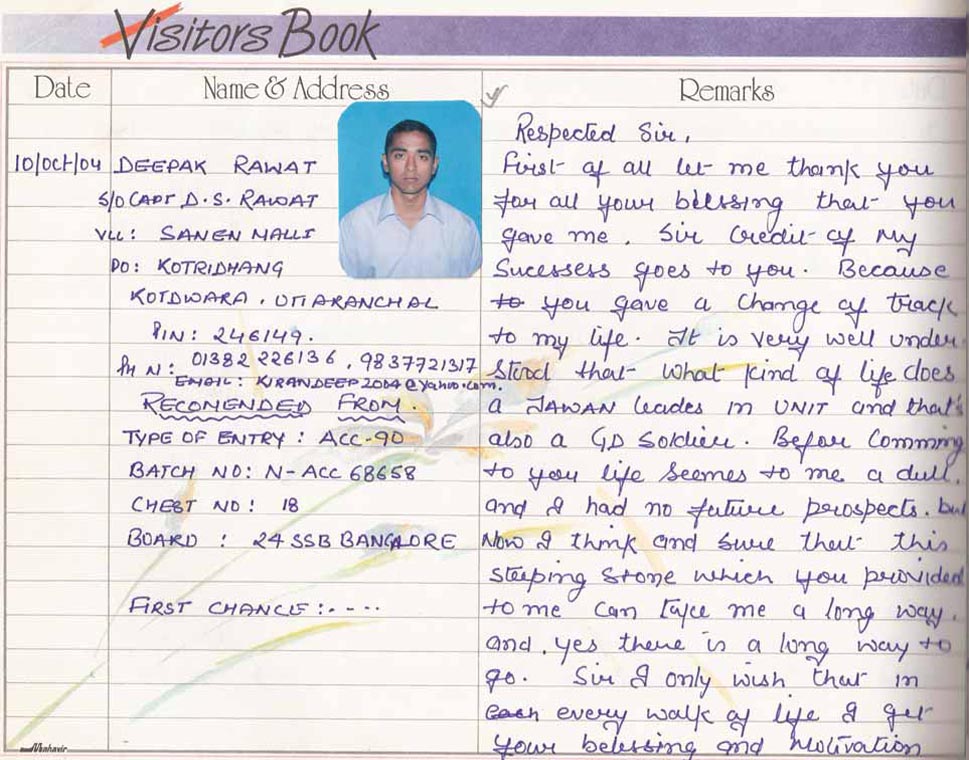 Visitors Book
Date
Name & Address
Remarks
10/Oct/04
DEEPAK RAWAT
S/O CAPT D.S. RAWAT
VLL: SANEN MALLI
PO: KOTRIDHANG
KOTDWARA, UTTARANCHAL
PIN: 246149.
PH N: 01382 226136, 9837721317
EMAIL: KIRANDEEP2004@yahoo.com.
RECOMENDED FROM.
TYPE OF ENTRY: ACC-90
BATCH NO: N-ACC 68658
CHEST NO: 18
BOARD : 24 SSB BANGALORE
FIRST CHANCE:----
Respected Sir,
First of all let me thank you
for all your blessing that you
gave me. Sir Credit of my
Sucessess goes to you. Because
to you gave a change of track
to my life. It is very well under-
stood that what kind of life does
a JAWAN leades in UNIT and that's
also a GD Soldier. Befor Comming
to you life seemes to me a dull.
and I had no future perospects. but
Now I think and sure that this
steeping stone which you provided
to me can take me a long way.
and, yes there is a long way to
go. Sir I only wish that in
each every walk of life I get
your belessing and motivation
Mahavir